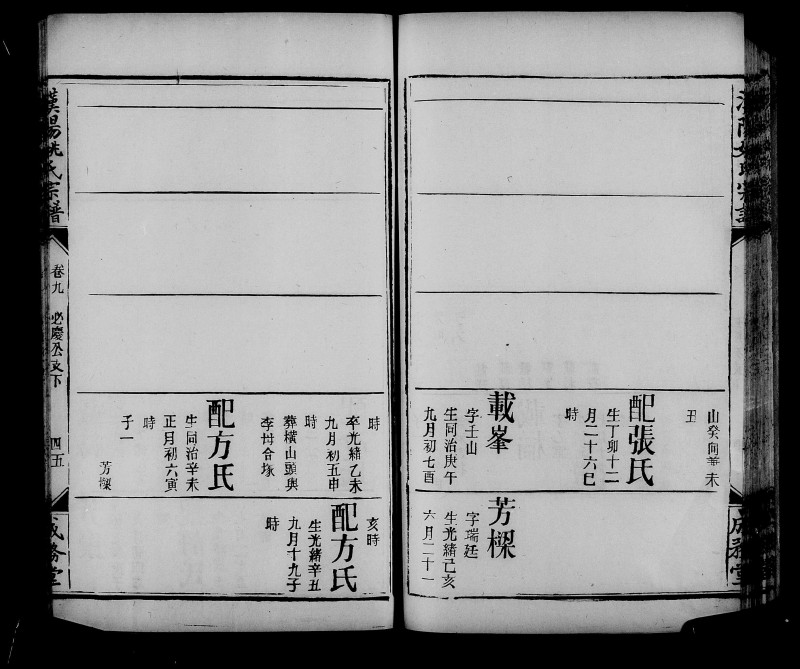 山癸向
未
丑
配張氏
生丁卯十二
月二十六巳
時
載峯
字壬山
生同治庚午
九月初七酉
時
卒光緒乙未
九月初五申
時
葬橫山頭與
李母合塚
配方氏
生同治辛未
正月初六寅
時
子一
芳樑
芳樑
字瑞廷
生光緒己亥
六月二十一
亥時
配方氏
生光緒辛丑
九月十九子
時
漢陽姚氏宗譜
卷九
必慶公支下
四五
成務堂